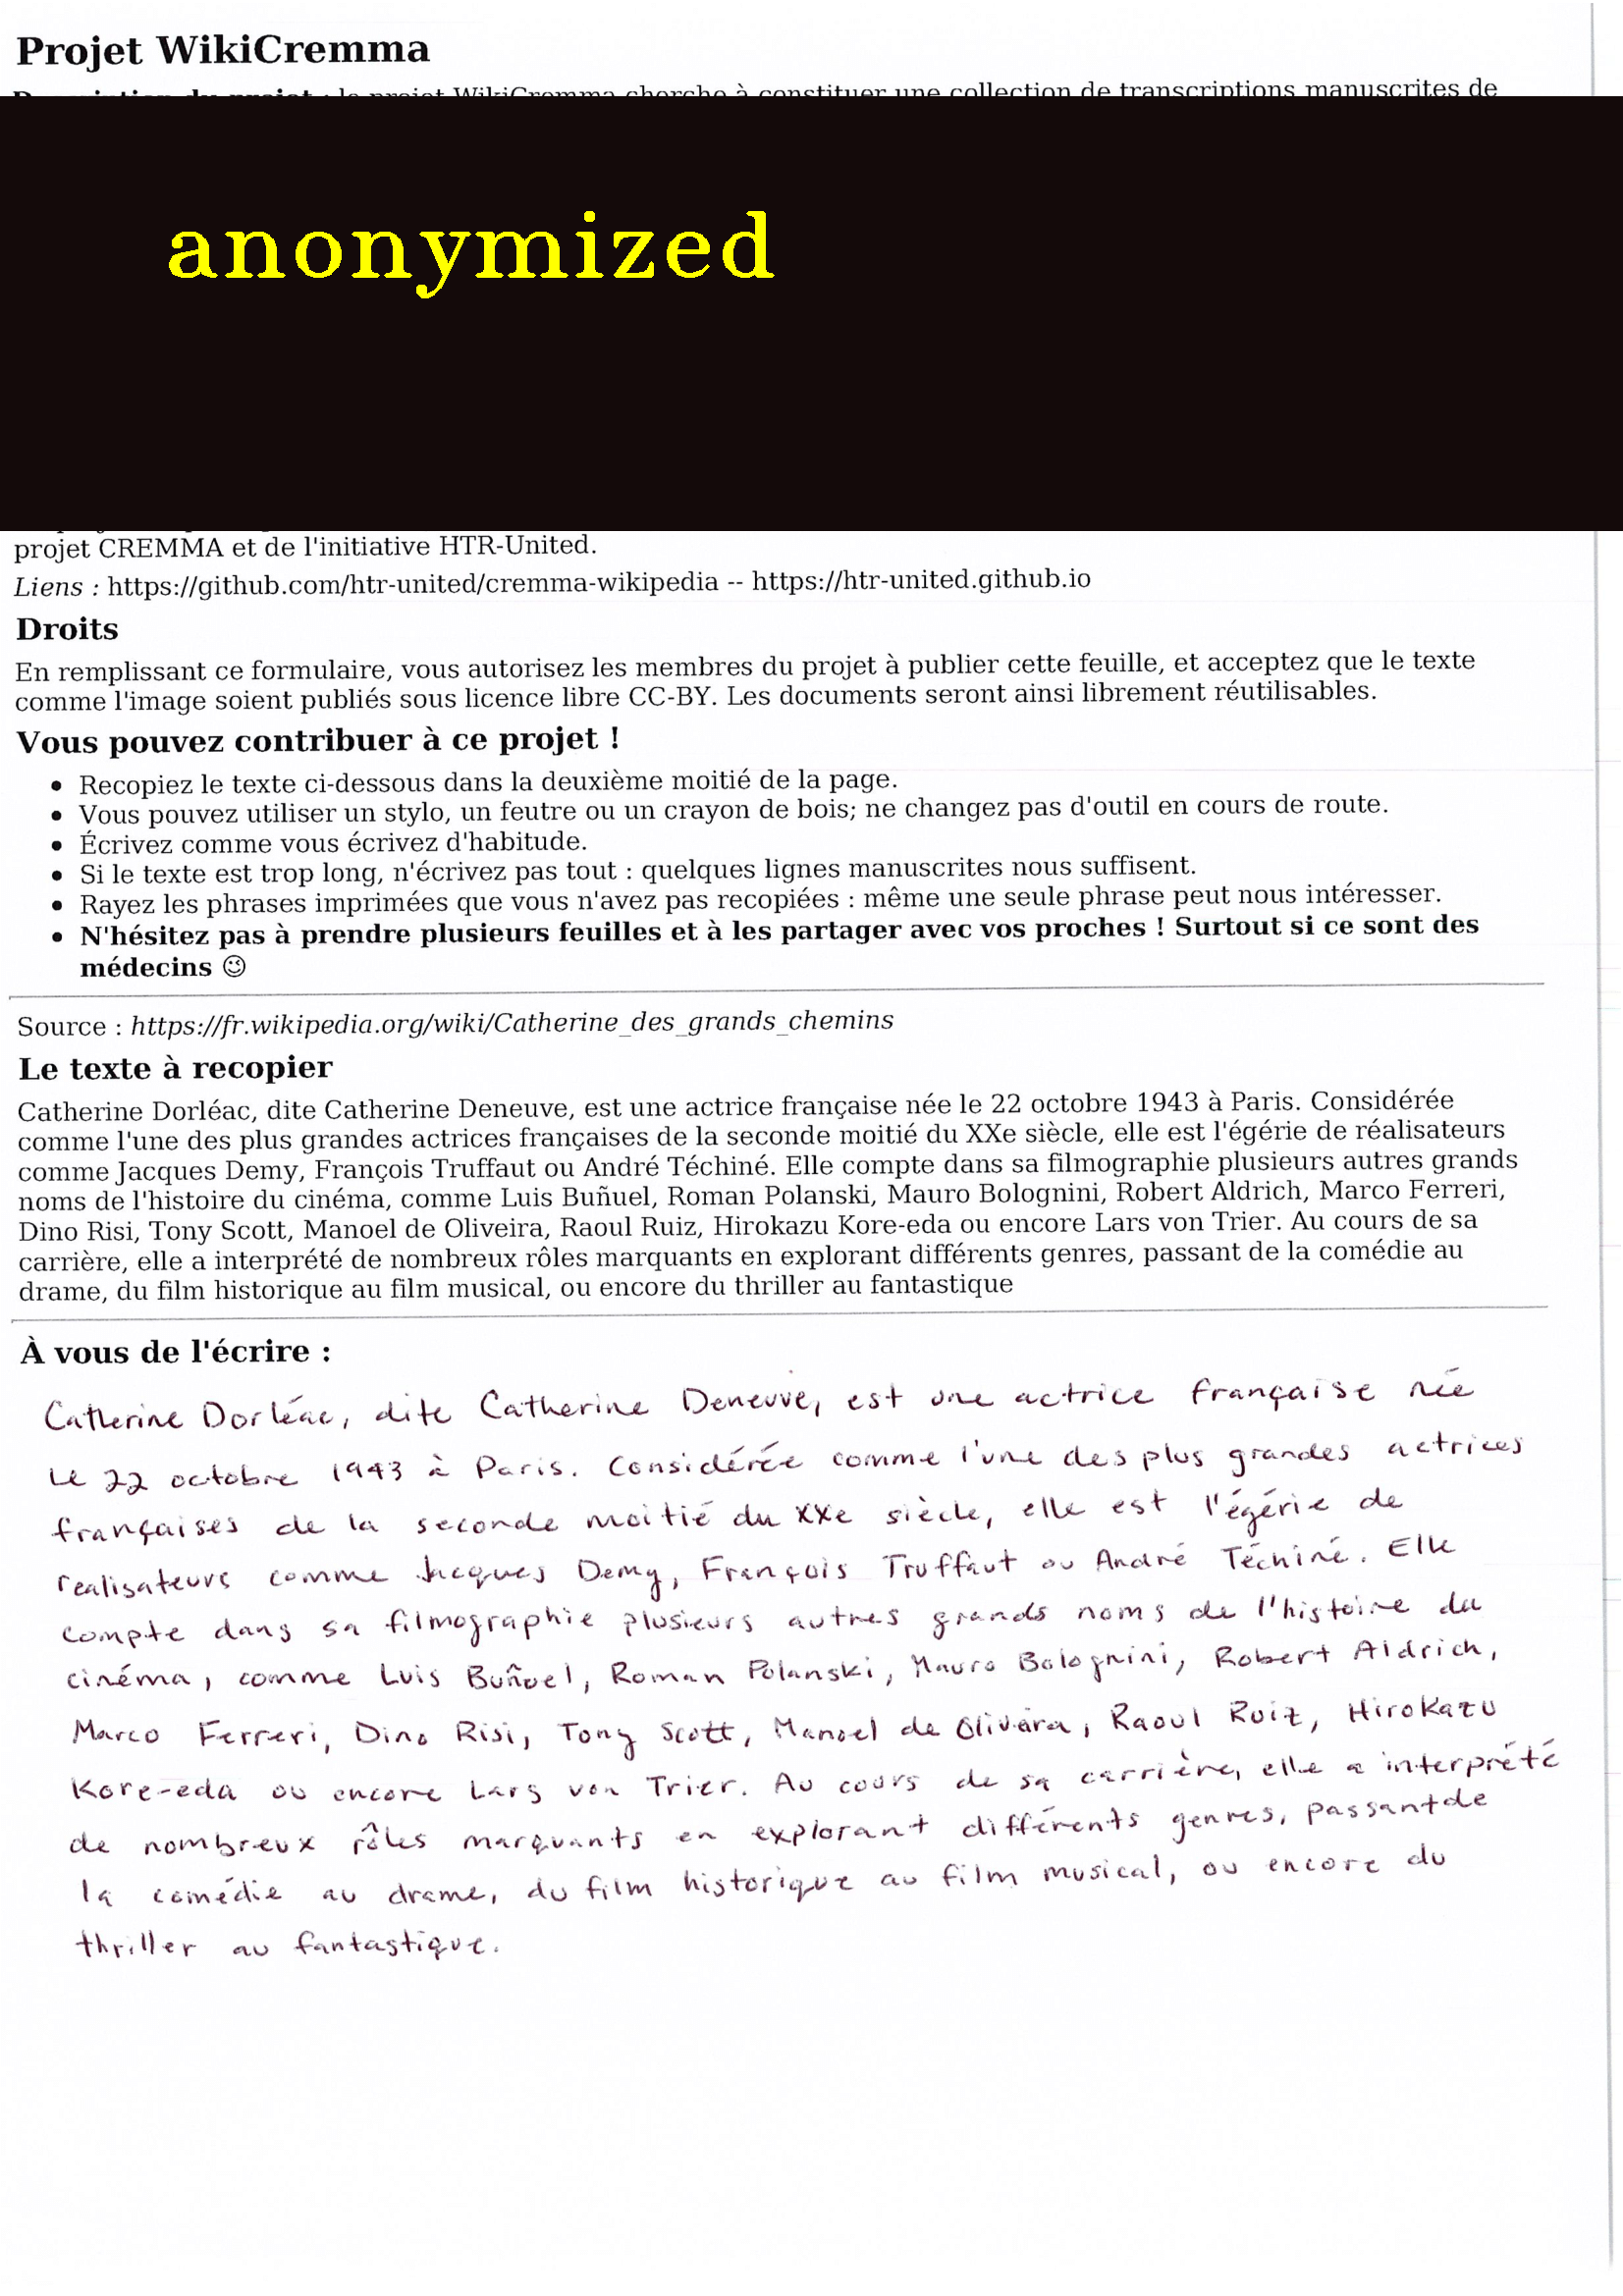 Projet WikiCremma
Description du projet : le projet WikiCremma cherche à constituer une collection de transcriptions manuscrites de
anonymized
projet CREMMA et de l'initiative HTR-United.
Liens : https://github.com/htr-united/cremma-wikipedia -- https://htr-united.github.io
Droits
En remplissant ce formulaire, vous autorisez les membres du projet à publier cette feuille, et acceptez que le texte
comme l'image soient publiés sous licence libre CC-BY. Les documents seront ainsi librement réutilisables.
Vous pouvez contribuer à ce projet !
• Recopiez le texte ci-dessous dans la deuxième moitié de la page.
• Vous pouvez utiliser un stylo, un feutre ou un crayon de bois; ne changez pas d'outil en cours de route.
• Écrivez comme vous écrivez d'habitude.
• Si le texte est trop long, n'écrivez pas tout : quelques lignes manuscrites nous suffisent.
• Rayez les phrases imprimées que vous n'avez pas recopiées : même une seule phrase peut nous intéresser.
• N'hésitez pas à prendre plusieurs feuilles et à les partager avec vos proches ! Surtout si ce sont des
médecins 😉
Source : https://fr.wikipedia.org/wiki/Catherine_des_grands_chemins
Le texte à recopier
Catherine Dorléac, dite Catherine Deneuve, est une actrice française née le 22 octobre 1943 à Paris. Considérée
comme l'une des plus grandes actrices françaises de la seconde moitié du XXe siècle, elle est l'égérie de réalisateurs
comme Jacques Demy, François Truffaut ou André Téchiné. Elle compte dans sa filmographie plusieurs autres grands
noms de l'histoire du cinéma, comme Luis Buñuel, Roman Polanski, Mauro Bolognini, Robert Aldrich, Marco Ferreri,
Dino Risi, Tony Scott, Manoel de Oliveira, Raoul Ruiz, Hirokazu Kore-eda ou encore Lars von Trier. Au cours de sa
carrière, elle a interprété de nombreux rôles marquants en explorant différents genres, passant de la comédie au
drame, du film historique au film musical, ou encore du thriller au fantastique
À vous de l'écrire :
Catherine Dorléac, dite Catherine Deneuve, est une actrice française née
le 22 octobre 1943 à Paris. Considérée comme l'une des plus grandes actrices
françaises de la seconde moitié du XXe siècle, elle est l'égérie de
realisateurs comme Jacques Demy, François Truffaut ou André Téchiné. Elle
compte dans sa filmographie plusieurs autres grands noms de l'histoire du
cinéma, comme Luis Buñuel, Roman Polanski, Mauro Bolognini, Robert Aldrich,
Marco Ferreri, Dino Risi, Tony Scott, Manoel de Olivera, Raoul Ruiz, Hirokazu
Kore-eda ou encore Lars von Trier. Au cours de sa carrière, elle a interprété
de nombreux rôles marquants en explorant différents genres, passant de
la comédie au drame, du film historique au film musical, ou encore du
thriller au fantastique.